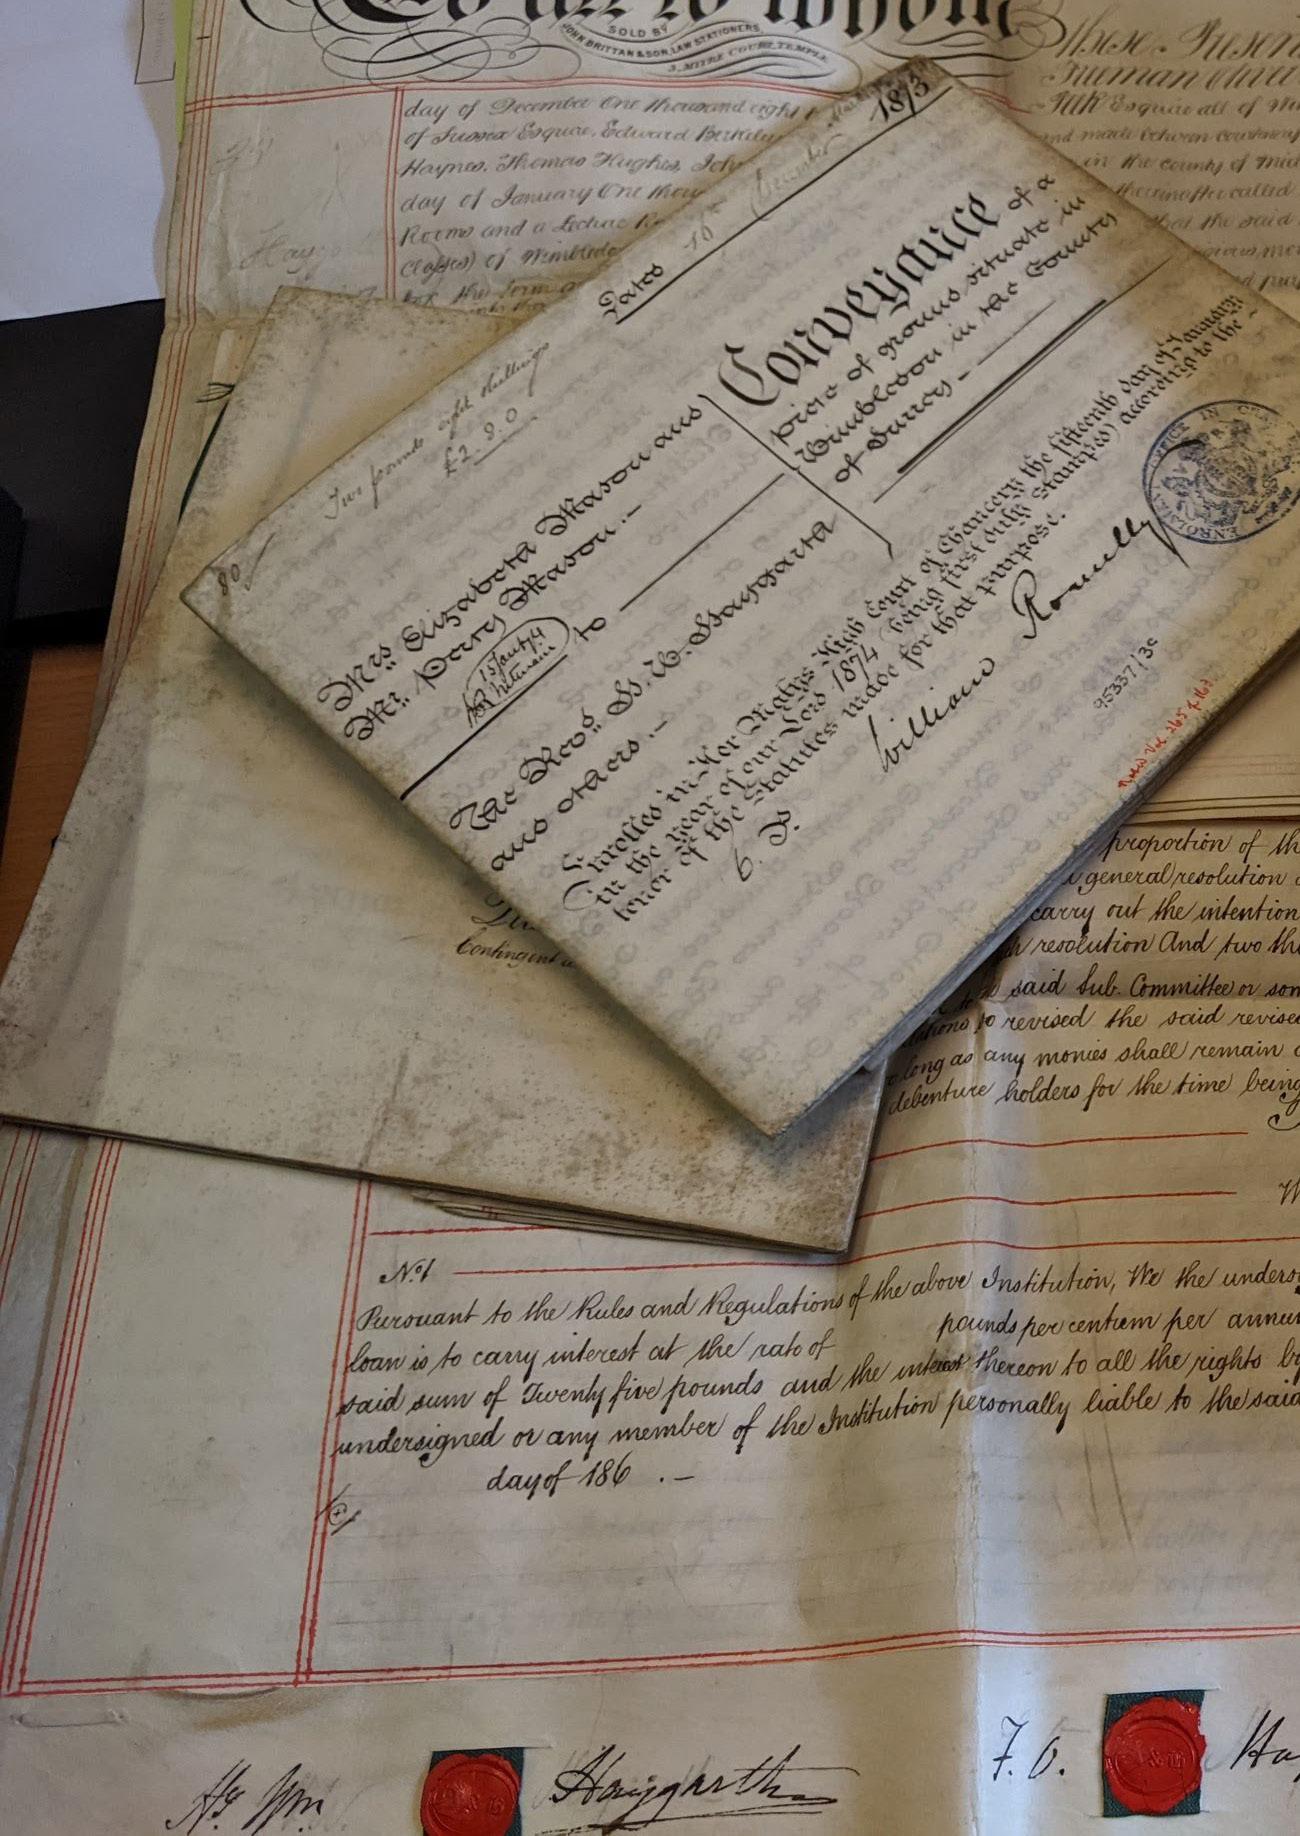 To all to whom
SOLD BY
JOHN BRITTAN & SON, LAW STATIONERS,
3, MITRE COURT, TEMPLE
these Presen
Freeman
Esquire all of
day of December One thousand eight
of Sussex Esquire, Edward Berkeley
Haynes, Thomas Hughes, John
day of January One thou
Rooms and a Lecture
Classes) of Wimbledon
and made between
in the county of Mid
hereinafter called
that the said
Hay
Dated 16th December 1873
Two pounds eight shillings
£2.8.0
80
Mrs Elizabeth Mason and
Mr. Parry Mason.—
15 Jany 74
to
The Revd. H. W. Haygarth
and others.—
Conveyance of a
piece of ground situate in
Wimbledon in the County
of Surrey—
Enrolled in Her Majs High Court of Chancery the fifteenth day of January
in the year of our Lord 1874 (being first duly stamped) according to the
tenor of the Statutes made for that purpose.
William Romilly
ENROLMENT OFFICE IN
95337/30
Contingent
proportion of th
general resolution
carry out the intention
resolution And two th
said Sub. Committee or som
to revised the said revise
long as any monies shall remain
debenture holders for the time being
No. 1
Pursuant to the Rules and Regulations of the above Institution, We the unders
pounds per centum per annu
loan is to carry interest at the rate of
said sum of Twenty five pounds and the interest thereon to all the rights
undersigned or any member of the Institution personally liable to the said
day of 186 .—
Hy Wm Haygarth
F. O. Ha